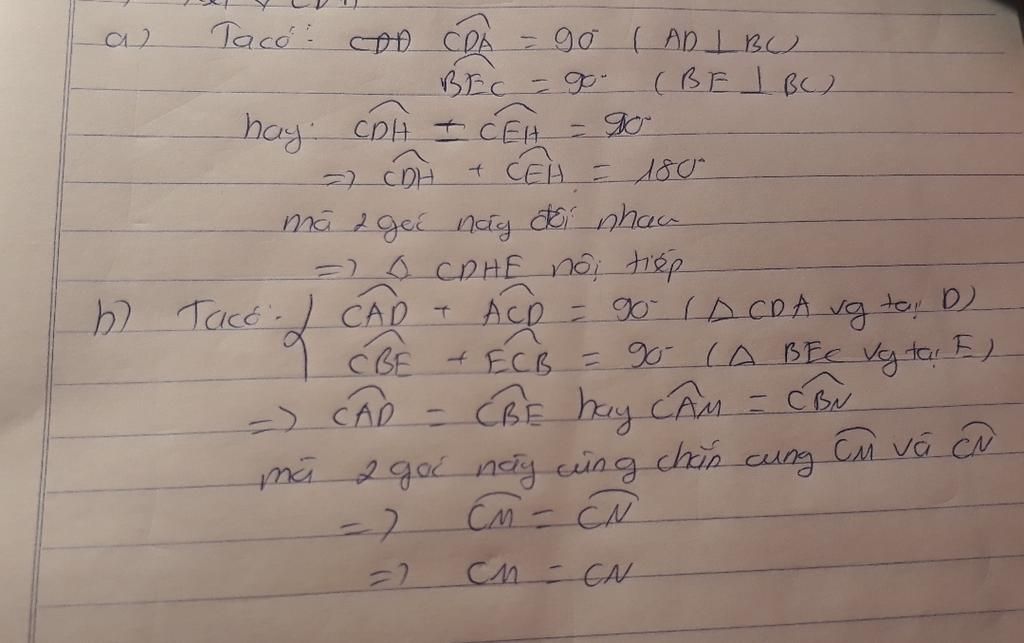 a) Ta có: CDA = 90° ( AD ⊥ BC)
BEC = 90° ( BE ⊥ BC)
hay: CDH = CEH = 90°
=> CDH + CEH = 180°
mà 2 goć này đối nhau
=> ◊ CDHE nội tiếp
b) Ta có: { CAD + ACD = 90° ( Δ CDA vg tại D)
CBE + ECB = 90° ( Δ BEC vg tại E)
=> CAD = CBE hay CAM = CBN
mà 2 goć này cùng chắn cung CM và CN
=> CM = CN
=> CM = CN